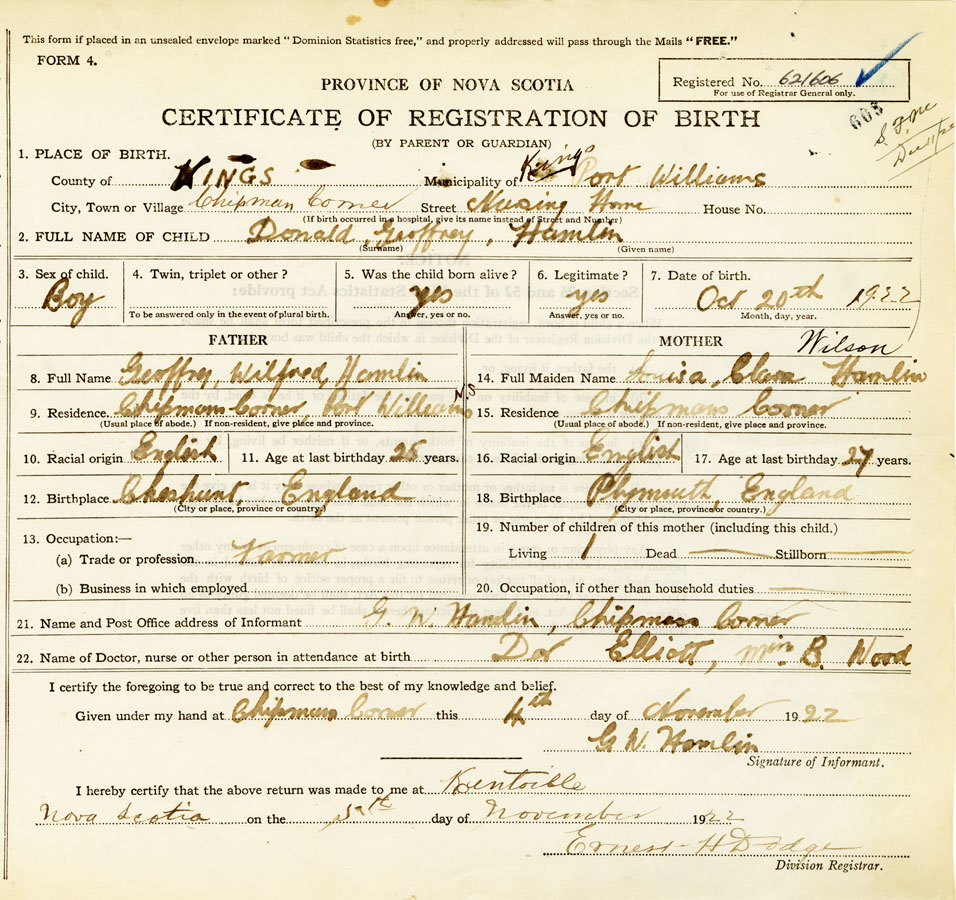 This form if placed in an unsealed envelope marked "Dominion Statistics free," and properly addressed will pass through the Mails "FREE."
FORM 4.
Registered No. 621606
For use of Registrar General only.
603
PROVINCE OF NOVA SCOTIA
CERTIFICATE OF REGISTRATION OF BIRTH
(BY PARENT OR GUARDIAN)
1. PLACE OF BIRTH.
County of KINGS Municipality of Kings Port Williams
City, Town or Village Chipman Corner Street Nursing Home House No.
(If birth occurred in a hospital, give its name instead of Street and Number)
2. FULL NAME OF CHILD Donald, Geoffrey, Hamlin
(Surname) (Given name)
3. Sex of child. Boy
4. Twin, triplet or other?
To be answered only in the event of plural birth.
5. Was the child born alive? yes
Answer, yes or no.
6. Legitimate? yes
Answer, yes or no.
7. Date of birth. Oct 20th 1922
Month, day, year.
FATHER
8. Full Name Geoffrey, Wilfred, Hamlin
9. Residence Chipmans Corner, Port Williams N.S
(Usual place of abode.) If non-resident, give place and province.
10. Racial origin English 11. Age at last birthday 25 years.
12. Birthplace Cheshunt, England
(City or place, province or country.)
13. Occupation:—
(a) Trade or profession Farmer
(b) Business in which employed
MOTHER Wilson
14. Full Maiden Name Louisa, Clara Hamlin
15. Residence Chipmans Corner
(Usual place of abode.) If non-resident, give place and province.
16. Racial origin English 17. Age at last birthday 27 years.
18. Birthplace Plymouth, England
(City or place, province or country.)
19. Number of children of this mother (including this child.)
Living 1 Dead — Stillborn —
20. Occupation, if other than household duties —
21. Name and Post Office address of Informant G. W. Hamlin, Chipmans Corner
22. Name of Doctor, nurse or other person in attendance at birth Dor Elliott, Miss B. Wood
I certify the foregoing to be true and correct to the best of my knowledge and belief.
Given under my hand at Chipmans Corner this 4th day of November 1922
G W. Hamlin
Signature of Informant.
I hereby certify that the above return was made to me at Kentville
Nova Scotia on the 5th day of November 1922
Ernest H Dodge
Division Registrar.